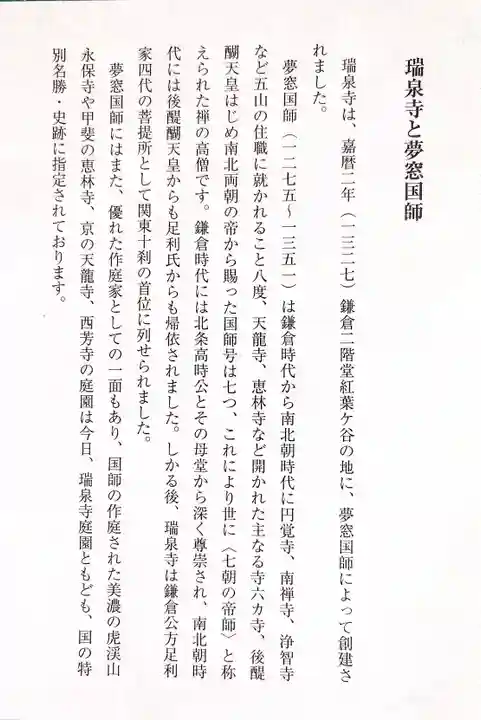 瑞泉寺と夢窓国師
瑞泉寺は、嘉暦二年（一三二七）鎌倉二階堂紅葉ケ谷の地に、夢窓国師によって創建さ
れました。
夢窓国師（一二七五～一三五一）は鎌倉時代から南北朝時代に円覚寺、南禅寺、浄智寺
など五山の住職に就かれること八度、天龍寺、恵林寺など開かれた主なる寺六カ寺、後醍
醐天皇はじめ南北両朝の帝から賜った国師号は七つ、これにより世に〈七朝の帝師〉と称
えられた禅の高僧です。鎌倉時代には北条高時公とその母堂から深く尊崇され、南北朝時
代には後醍醐天皇からも足利氏からも帰依されました。しかる後、瑞泉寺は鎌倉公方足利
家四代の菩提所として関東十刹の首位に列せられました。
夢窓国師にはまた、優れた作庭家としての一面もあり、国師の作庭された美濃の虎渓山
永保寺や甲斐の恵林寺、京の天龍寺、西芳寺の庭園は今日、瑞泉寺庭園ともども、国の特
別名勝・史跡に指定されております。